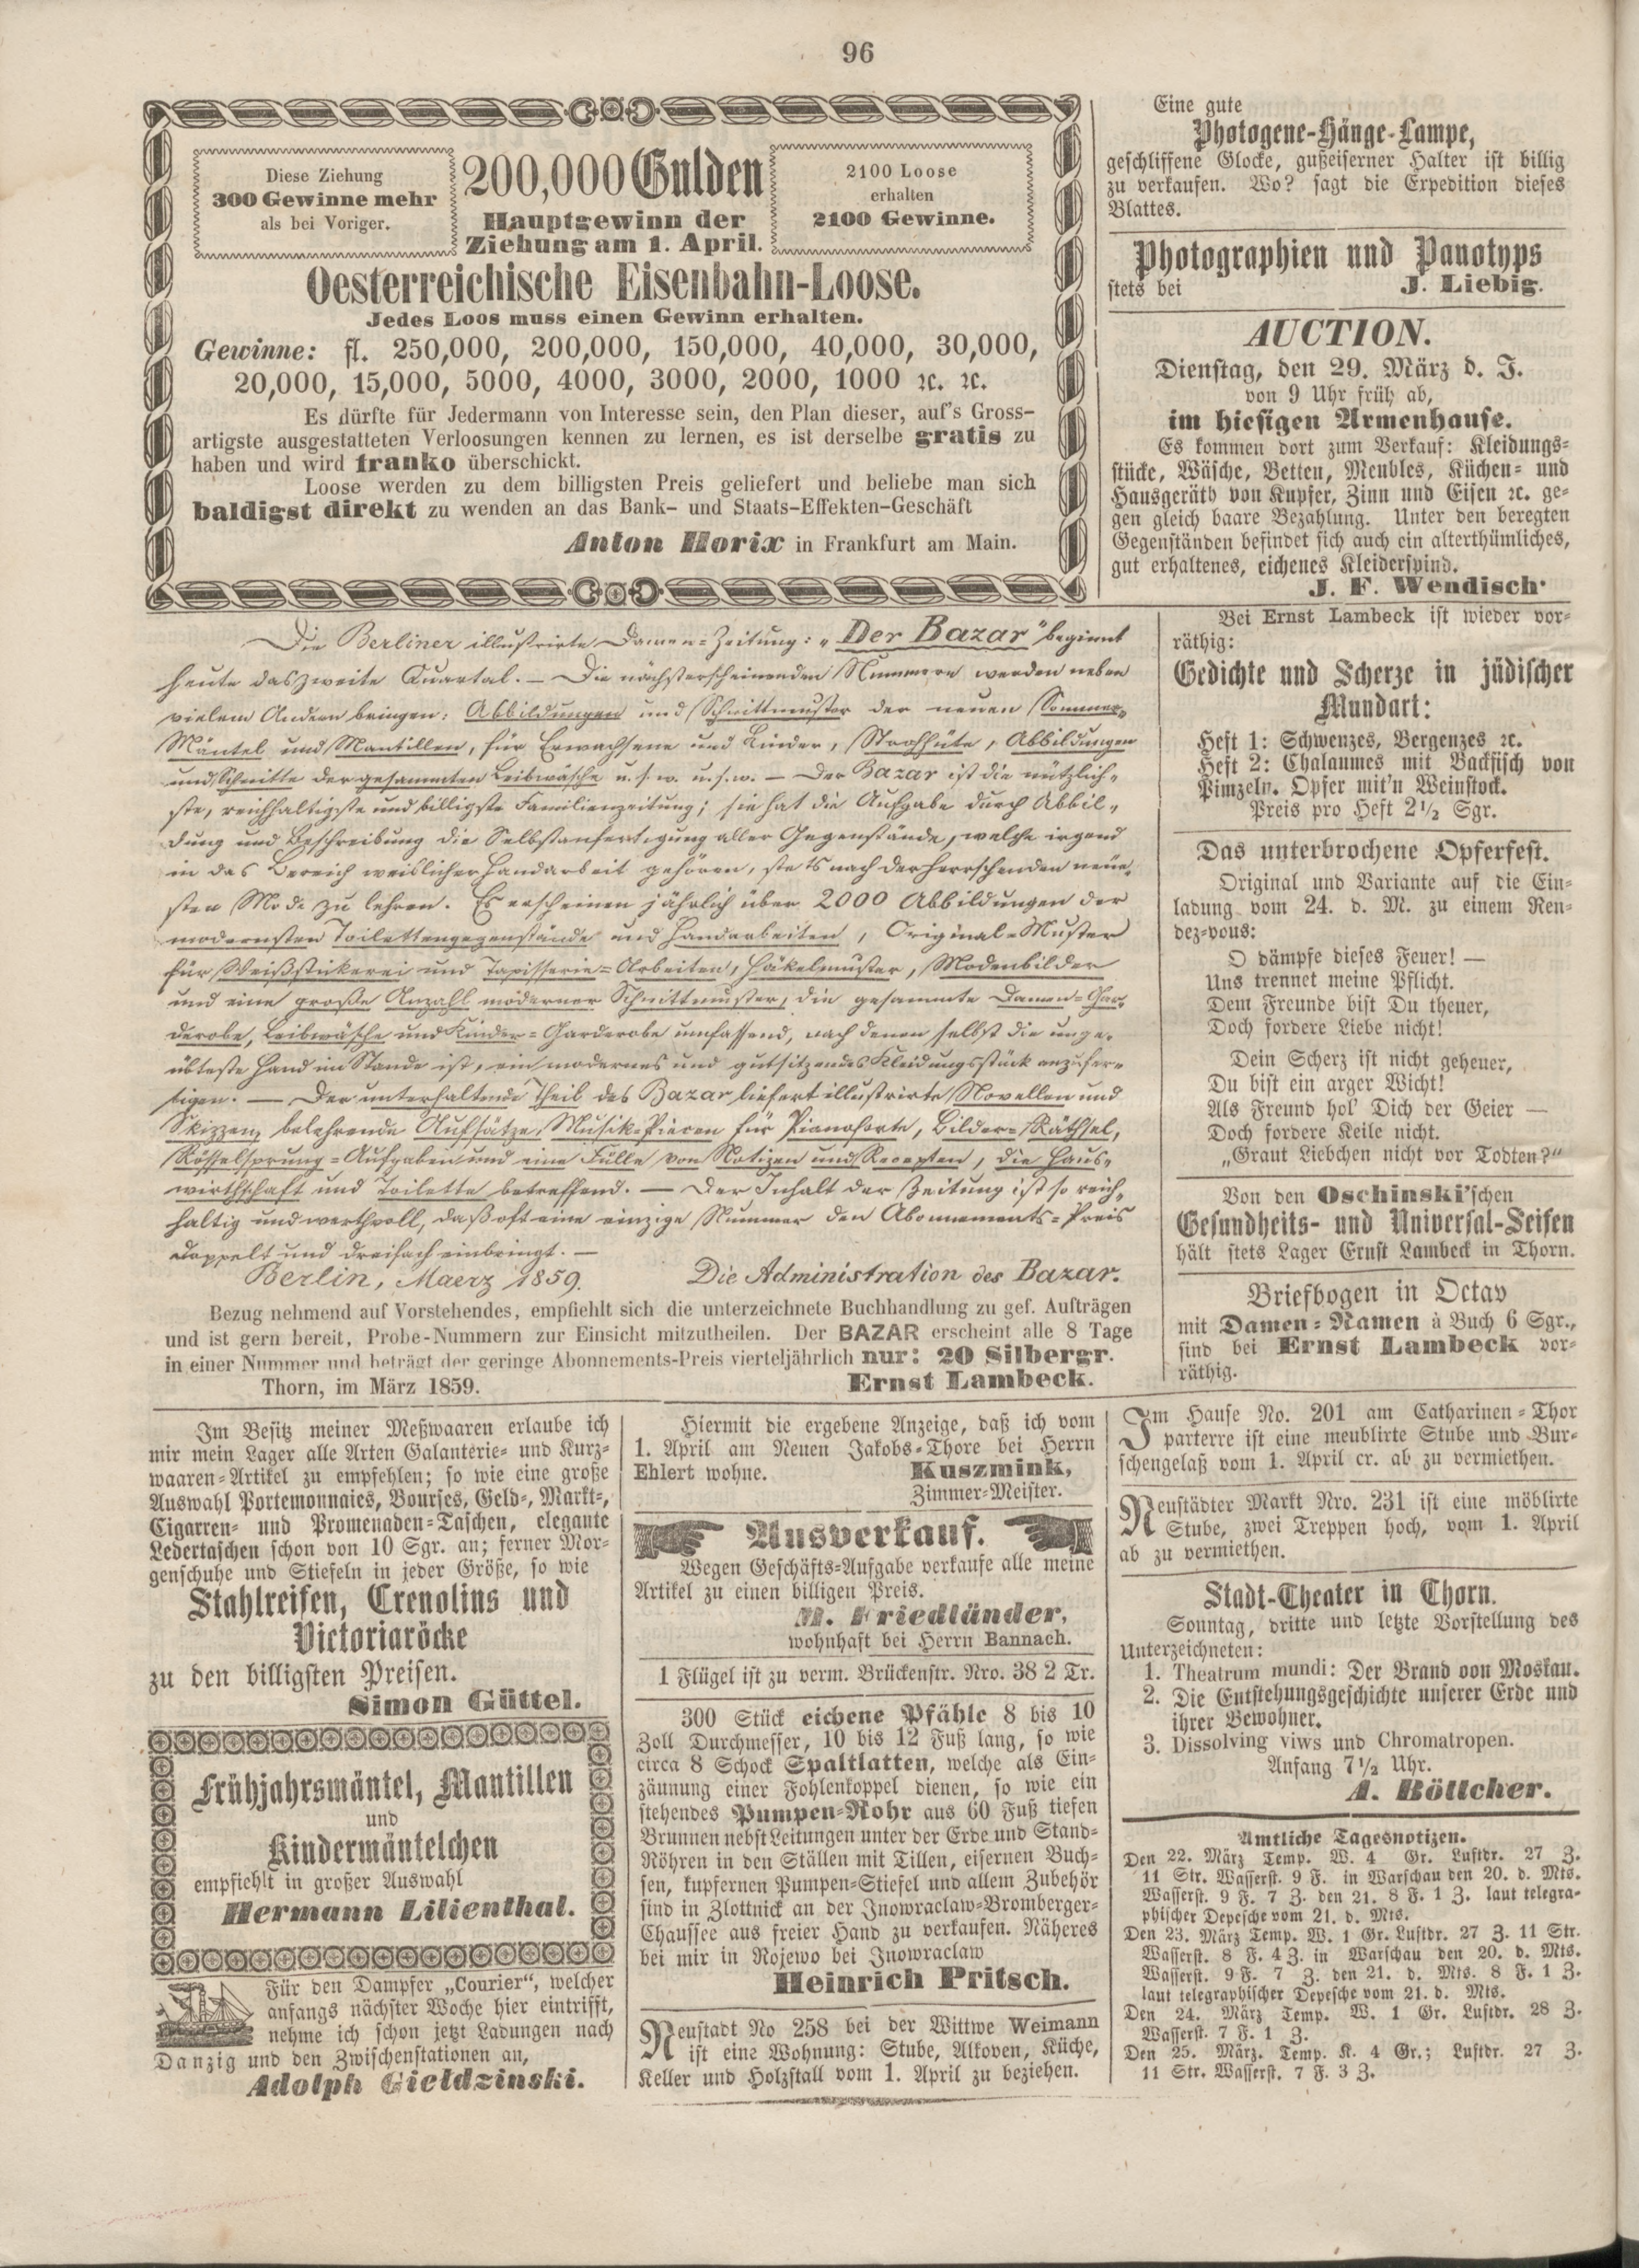 96
Diese Ziehung
300 Gewinne mehr
als bei Voriger.
200,000 Gulden
Hauptgewinn der
Ziehung am 1. April.
2100 Loose
erhalten
2100 Gewinne.
Oesterreichische Eisenbahn-Loose.
Jedes Loos muss einen Gewinn erhalten.
Gewinne: fl. 250,000, 200,000, 150,000, 40,000, 30,000,
20,000, 15,000, 5000, 4000, 3000, 2000, 1000 ꝛc. ꝛc.
Es dürfte für Jedermann von Interesse sein, den Plan dieser, auf's Gross-
artigste ausgestatteten Verloosungen kennen zu lernen, es ist derselbe gratis zu
haben und wird franko überschickt.
Loose werden zu dem billigsten Preis geliefert und beliebe man sich
baldigst direkt zu wenden an das Bank- und Staats-Effekten-Geschäft
Anton Horix in Frankfurt am Main.
Eine gute
Photogene-Hänge-Lampe,
geschliffene Glocke, gußeiserner Halter ist billig
zu verkaufen. Wo? sagt die Expedition dieses
Blattes.
Photographien und Panotyps
stets bei J. Liebig.
AUCTION.
Dienstag, den 29. März d. J.
von 9 Uhr früh ab,
im hiesigen Armenhause.
Es kommen dort zum Verkauf: Kleidungs-
stücke, Wäsche, Betten, Meubles, Küchen- und
Hausgeräth von Kupfer, Zinn und Eisen ꝛc. ge-
gen gleich baare Bezahlung. Unter den beregten
Gegenständen befindet sich auch ein alterthümliches,
gut erhaltenes, eichenes Kleiderspind.
J. F. Wendisch.
Die Berliner illustrirte Damen-Zeitung: „Der Bazar" beginnt
heute das zweite Quartal. — Die nächsterscheinenden Nummern werden neben
vielem Andern bringen: Abbildungen und Schnittmuster der neuen Sommer-
Mäntel und Mantillen, für Erwachsene und Kinder, Strohhüte, Abbildungen
und Schnitte der gesammten Leibwäsche u. s. w. u. s. w. — Der Bazar ist die nützlich-
ste, reichhaltigste und billigste Familienzeitung; sie hat die Aufgabe durch Abbil-
dung und Beschreibung die Selbstanfertigung aller Gegenstände, welche irgend
in das Bereich weiblicher Handarbeit gehören, stets nach der herrschenden neue-
sten Mode zu lehren. Es erscheinen jährlich über 2000 Abbildungen der
modernsten Toilettengegenstände und Handarbeiten, Original-Muster
für Weißstickerei und Tapisserie-Arbeiten, Häkelmuster, Modenbilder
und eine große Anzahl moderner Schnittmuster, die gesammte Damen-Gar-
derobe, Leibwäsche und Kinder-Garderobe umfassend, nach denen selbst die unge-
übteste Hand im Stande ist, ein modernes und gutsitzendes Kleidungsstück anzufer-
tigen. — Der unterhaltende Theil des Bazar liefert illustrirte Novellen und
Skizzen, belehrende Aufsätze, Musik-Piecen für Pianoforte, Bilder-Räthsel,
Rösselsprung-Aufgaben und eine Fülle von Notizen und Recepten, die Haus-
wirthschaft und Toilette betreffend. — Der Inhalt der Zeitung ist so reich-
haltig und werthvoll, daß oft eine einzige Nummer den Abonnements-Preis
doppelt und dreifach einbringt. —
Berlin, Maerz 1859. Die Administration des Bazar.
Bezug nehmend auf Vorstehendes, empfiehlt sich die unterzeichnete Buchhandlung zu gef. Aufträgen
und ist gern bereit, Probe-Nummern zur Einsicht mitzutheilen. Der BAZAR erscheint alle 8 Tage
in einer Nummer und beträgt der geringe Abonnements-Preis vierteljährlich nur: 20 Silbergr.
Thorn, im März 1859. Ernst Lambeck.
Bei Ernst Lambeck ist wieder vor-
räthig:
Gedichte und Scherze in jüdischer
Mundart:
Heft 1: Schwenzes, Bergenzes ꝛc.
Heft 2: Chalaumes mit Backfisch von
Pimzeln. Opfer mit'n Weinstock.
Preis pro Heft 2½ Sgr.
Das unterbrochene Opferfest.
Original und Variante auf die Ein-
ladung vom 24. d. M. zu einem Ren-
dez-vous:
O dämpfe dieses Feuer! —
Uns trennet meine Pflicht.
Dem Freunde bist Du theuer,
Doch fordere Liebe nicht!
Dein Scherz ist nicht geheuer,
Du bist ein arger Wicht!
Als Freund hol' Dich der Geier —
Doch fordere Keile nicht.
„Graut Liebchen nicht vor Todten?"
Von den Oschinski'schen
Gesundheits- und Universal-Seifen
hält stets Lager Ernst Lambeck in Thorn.
Briefbogen in Octav
mit Damen-Namen à Buch 6 Sgr.,
sind bei Ernst Lambeck vor-
räthig.
Im Besitz meiner Meßwaaren erlaube ich
mir mein Lager alle Arten Galanterie- und Kurz-
waaren-Artikel zu empfehlen; so wie eine große
Auswahl Portemonnaies, Bourses, Geld-, Markt-,
Cigarren- und Promenaden-Taschen, elegante
Ledertaschen schon von 10 Sgr. an; ferner Mor-
genschuhe und Stiefeln in jeder Größe, so wie
Stahlreifen, Crenolins und
Victoriaröcke
zu den billigsten Preisen.
Simon Güttel.
Frühjahrsmäntel, Mantillen
und
Kindermäntelchen
empfiehlt in großer Auswahl
Hermann Lilienthal.
Für den Dampfer „Courier", welcher
anfangs nächster Woche hier eintrifft,
nehme ich schon jetzt Ladungen nach
Danzig und den Zwischenstationen an,
Adolph Gieldzinski.
Hiermit die ergebene Anzeige, daß ich vom
1. April am Neuen Jakobs-Thore bei Herrn
Ehlert wohne. Kuszmink,
Zimmer-Meister.
Ausverkauf.
Wegen Geschäfts-Aufgabe verkaufe alle meine
Artikel zu einen billigen Preis.
M. Friedländer,
wohnhaft bei Herrn Bannach.
1 Flügel ist zu verm. Brückenstr. Nro. 38 2 Tr.
300 Stück eichene Pfähle 8 bis 10
Zoll Durchmesser, 10 bis 12 Fuß lang, so wie
circa 8 Schock Spaltlatten, welche als Ein-
zäunung einer Fohlenkoppel dienen, so wie ein
stehendes Pumpen-Rohr aus 60 Fuß tiefen
Brunnen nebst Leitungen unter der Erde und Stand-
Röhren in den Ställen mit Tillen, eisernen Buch-
sen, kupfernen Pumpen-Stiefel und allem Zubehör
sind in Zlottnick an der Inowraclaw-Bromberger-
Chaussee aus freier Hand zu verkaufen. Näheres
bei mir in Rojewo bei Inowraclaw
Heinrich Pritsch.
Neustadt No 258 bei der Wittwe Weimann
ist eine Wohnung: Stube, Alkoven, Küche,
Keller und Holzstall vom 1. April zu beziehen.
Im Hause No. 201 am Catharinen-Thor
parterre ist eine meublirte Stube und Bur-
schengelaß vom 1. April cr. ab zu vermiethen.
Neustädter Markt Nro. 231 ist eine möblirte
Stube, zwei Treppen hoch, vom 1. April
ab zu vermiethen.
Stadt-Theater in Thorn.
Sonntag, dritte und letzte Vorstellung des
Unterzeichneten:
1. Theatrum mundi: Der Brand von Moskau.
2. Die Entstehungsgeschichte unserer Erde und
ihrer Bewohner.
3. Dissolving viws und Chromatropen.
Anfang 7½ Uhr.
A. Böttcher.
Amtliche Tagesnotizen.
Den 22. März Temp. W. 4 Gr. Luftdr. 27 Z.
11 Str. Wasserst. 9 F. in Warschau den 20. d. Mts.
Wasserst. 9 F. 7 Z. den 21. 8 F. 1 Z. laut telegra-
phischer Depesche vom 21. d. Mts.
Den 23. März Temp. W. 1 Gr. Luftdr. 27 Z. 11 Str.
Wasserst. 8 F. 4 Z. in Warschau den 20. d. Mts.
Wasserst. 9 F. 7 Z. den 21. d. Mts. 8 F. 1 Z.
laut telegraphischer Depesche vom 21. d. Mts.
Den 24. März Temp. W. 1 Gr. Luftdr. 28 Z.
Wasserst. 7 F. 1 Z.
Den 25. März. Temp. K. 4 Gr.; Luftdr. 27 Z.
11 Str. Wasserst. 7 F. 3 Z.